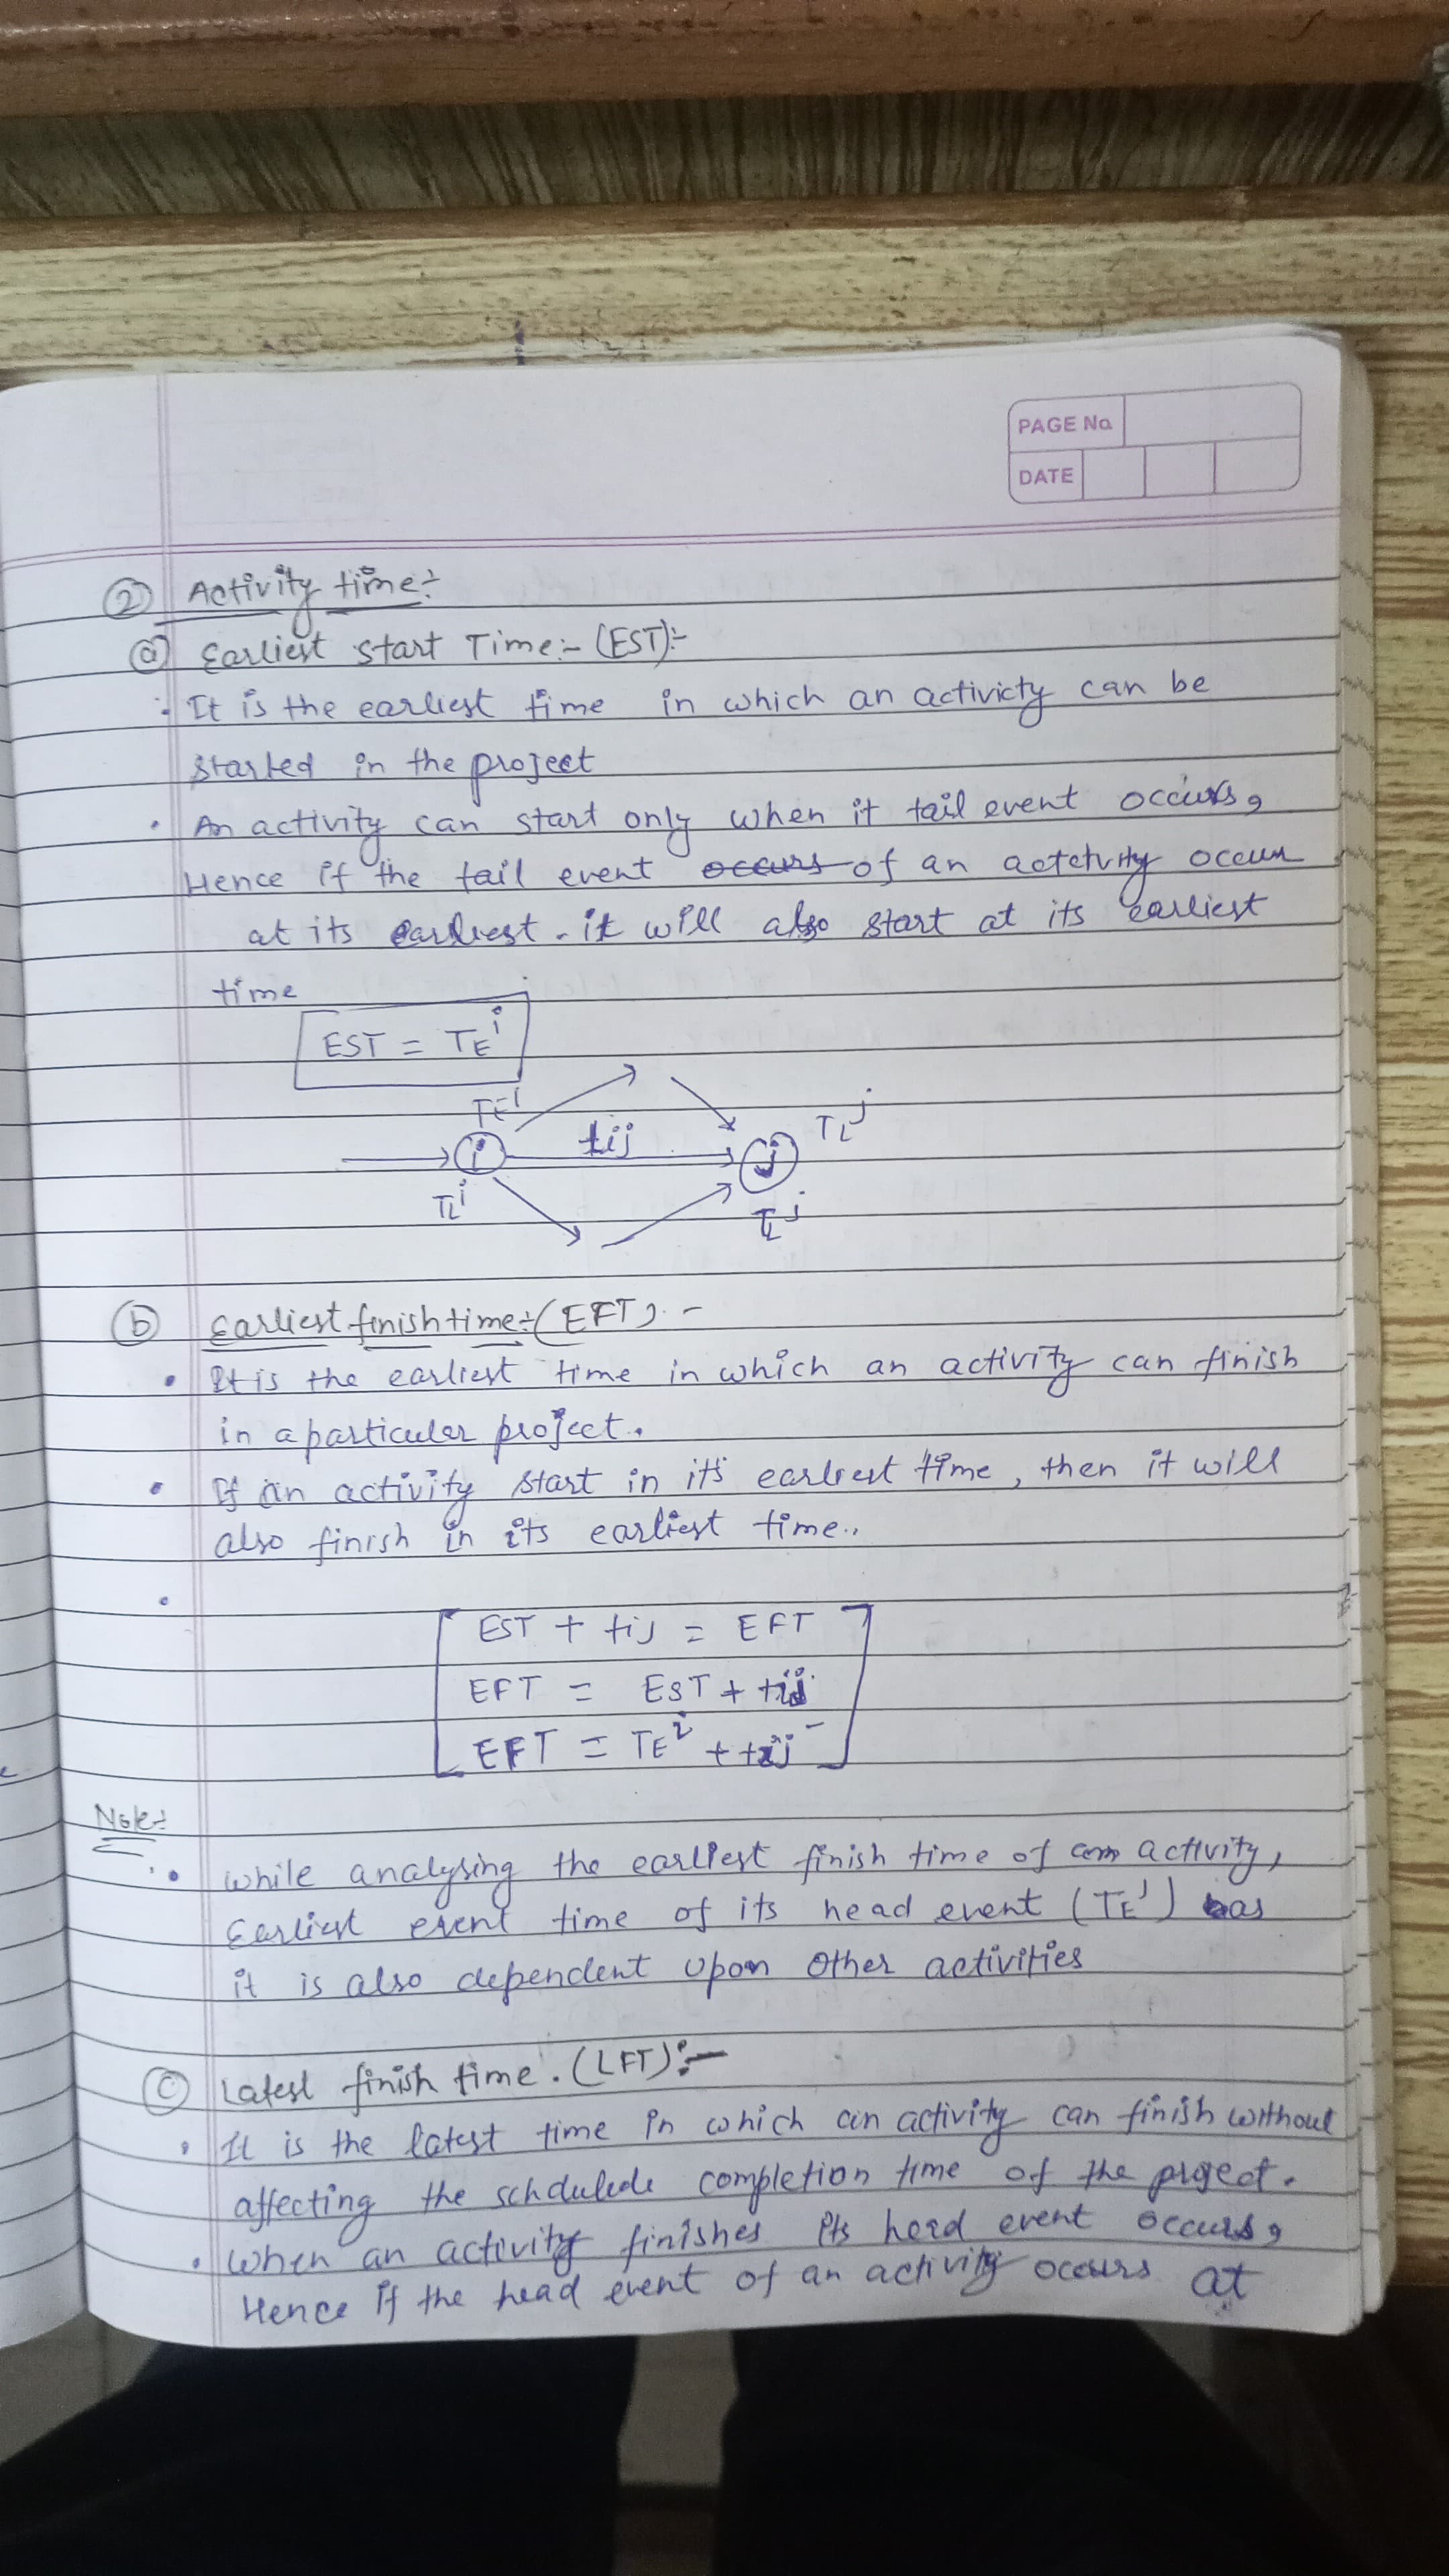 PAGE No
DATE
② Activity time:-
ⓐ Earliest start Time:- (EST):-
: It is the earliest time in which an activicty can be
started in the project
• An activity can start only when it tail event occurs,
Hence if the tail event occurs of an actctvity occur
at its earliest. it will also start at its earliest
time
EST = TE^i
TE^i
tij
TL^j
i
j
TL^i
TL^j
ⓑ Earliest finish time:- (EFT). -
• It is the earliest time in which an activity can finish
in a particular project.
• If an activity start in its earliest time, then it will
also finish in its earliest time..
•
EST + tij = EFT
EFT = EST + tij
EFT = TE^i + tij
Note:-
• while analysing the earliest finish time of an activity,
Earliest event time of its head event (TE^j) as
it is also dependent upon other activities
ⓒ Latest finish time. (LFT):-
• It is the latest time in which an activity can finish without
affecting the schdulede completion time of the project.
• When an activity finishes its head event occurs,
Hence if the head event of an activity occurs at